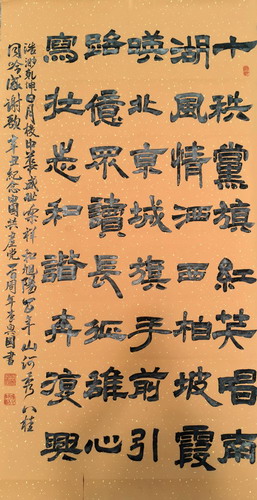 十秩黨旗紅英唱南
湖風情洒西柏坡霞
暎北京城旗手前引
路億眾讀長雄心
寫壯志和諧奔復興
浩渺乾坤日月中華盛世祥和旭陽山河秀八桂
同吟辛丑紀念中國共產黨百周年李國書